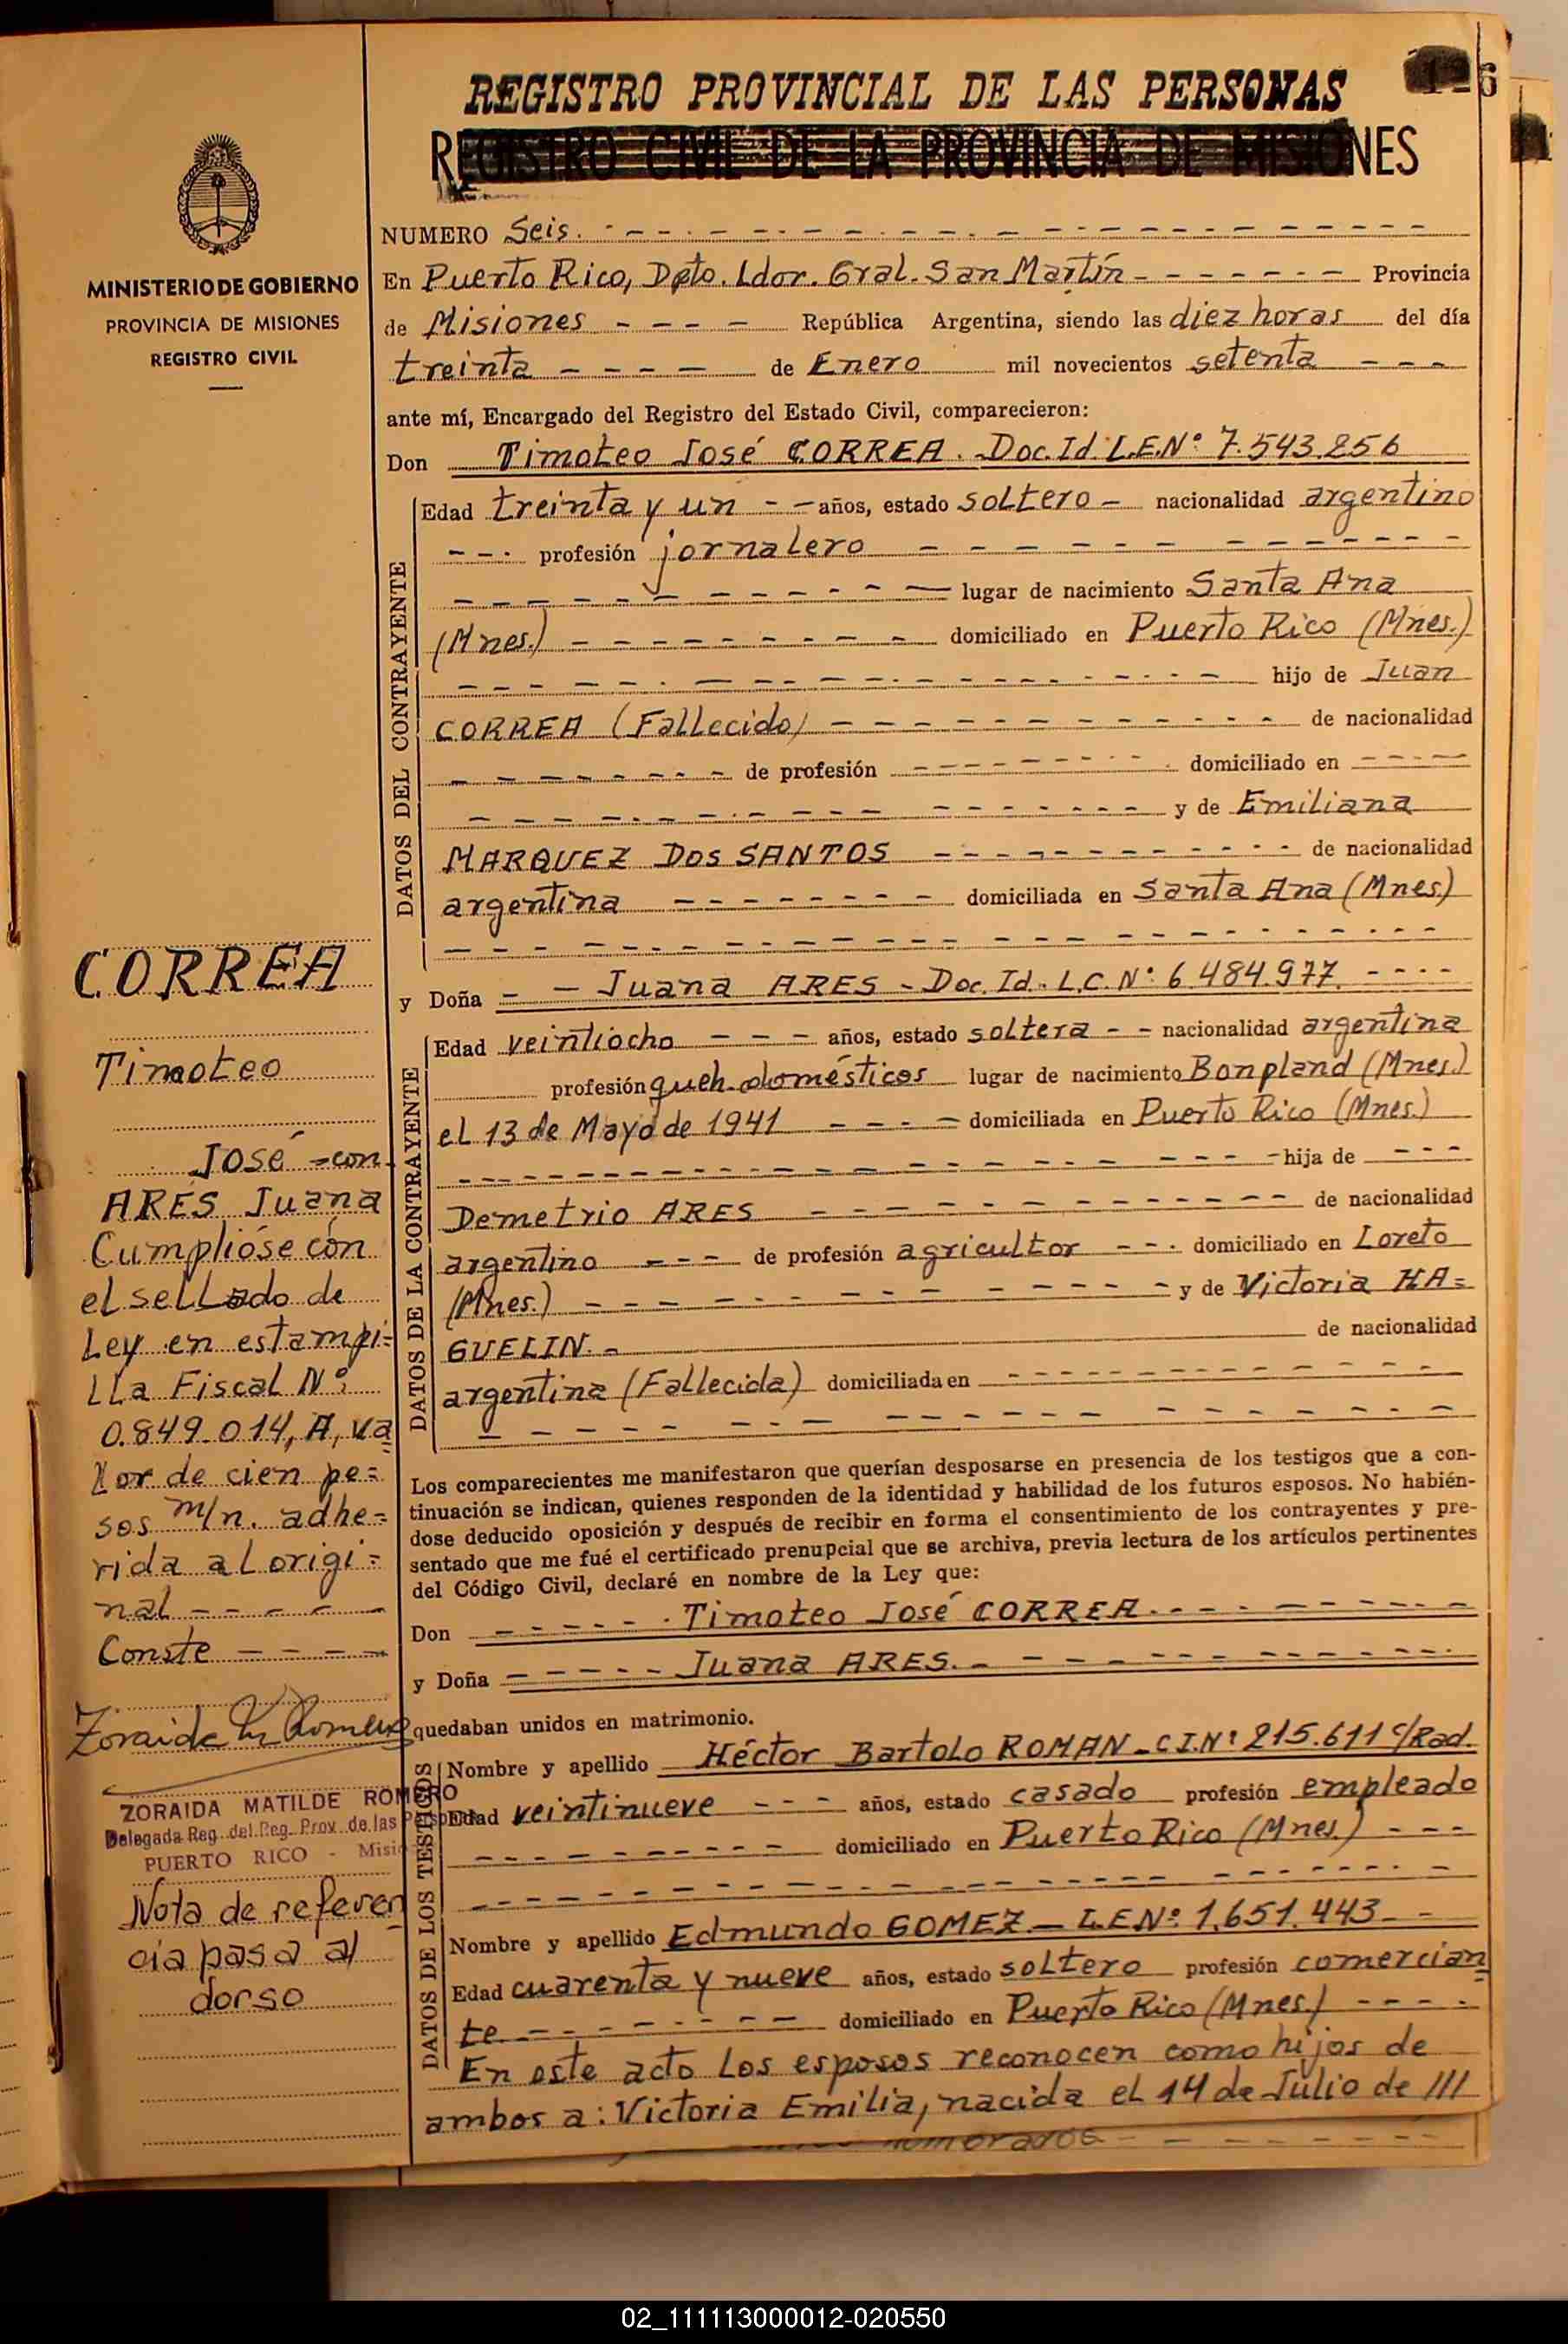 REGISTRO PROVINCIAL DE LAS PERSONAS
REGISTRO CIVIL DE LA PROVINCIA DE MISIONES
6
MINISTERIO DE GOBIERNO
PROVINCIA DE MISIONES
REGISTRO CIVIL
NUMERO Seis.
En Puerto Rico, Dpto. Ldor. Gral. San Martín Provincia
de Misiones República Argentina, siendo las diez horas del día
treinta de Enero mil novecientos setenta
ante mí, Encargado del Registro del Estado Civil, comparecieron:
Don Timoteo José CORREA. Doc. Id. L.E.Nº 7.543.256
DATOS DEL CONTRAYENTE
Edad treinta y un años, estado soltero nacionalidad argentino
profesión jornalero
lugar de nacimiento Santa Ana
(Mnes.) domiciliado en Puerto Rico (Mnes.)
hijo de Juan
CORREA (Fallecido) de nacionalidad
de profesión domiciliado en
y de Emiliana
MARQUEZ DOS SANTOS de nacionalidad
argentina domiciliada en Santa Ana (Mnes)
y Doña Juana ARES - Doc. Id. L.C. Nº 6.484.977.
DATOS DE LA CONTRAYENTE
Edad veintiocho años, estado soltera nacionalidad argentina
profesión queh. domésticos lugar de nacimiento Bonpland (Mnes.)
el 13 de Mayo de 1941 domiciliada en Puerto Rico (Mnes.)
hija de
Demetrio ARES de nacionalidad
argentino de profesión agricultor domiciliado en Loreto
(Mnes.) y de Victoria HA=
GUELIN. de nacionalidad
argentina (Fallecida) domiciliada en
Los comparecientes me manifestaron que querían desposarse en presencia de los testigos que a con-
tinuación se indican, quienes responden de la identidad y habilidad de los futuros esposos. No habién-
dose deducido oposición y después de recibir en forma el consentimiento de los contrayentes y pre-
sentado que me fué el certificado prenupcial que se archiva, previa lectura de los artículos pertinentes
del Código Civil, declaré en nombre de la Ley que:
Don Timoteo José CORREA.
y Doña Juana ARES.
quedaban unidos en matrimonio.
DATOS DE LOS TESTIGOS
Nombre y apellido Héctor Bartolo ROMAN - C.I.Nº 215.611 c/Rad.
Edad veintinueve años, estado casado profesión empleado
domiciliado en Puerto Rico (Mnes.)
Nombre y apellido Edmundo GOMEZ - L.E.Nº 1.651.443
Edad cuarenta y nueve años, estado soltero profesión comercian
te domiciliado en Puerto Rico (Mnes.)
En este acto los esposos reconocen como hijos de
ambos a: Victoria Emilia, nacida el 14 de Julio de ///
CORREA
Timoteo
José - con
ARES Juana
Cumplióse con
el sellado de
Ley en estampi=
lla Fiscal Nº
0.849.014, A, va
lor de cien pe=
sos m/n. adhe=
rida al origi=
nal
Conste
Zoraida M Romero
ZORAIDA MATILDE ROMERO
Delegada Reg. del Reg. Prov. de las Personas
PUERTO RICO - Misi
Nota de referen
cia pasa al
dorso
02_111113000012-020550